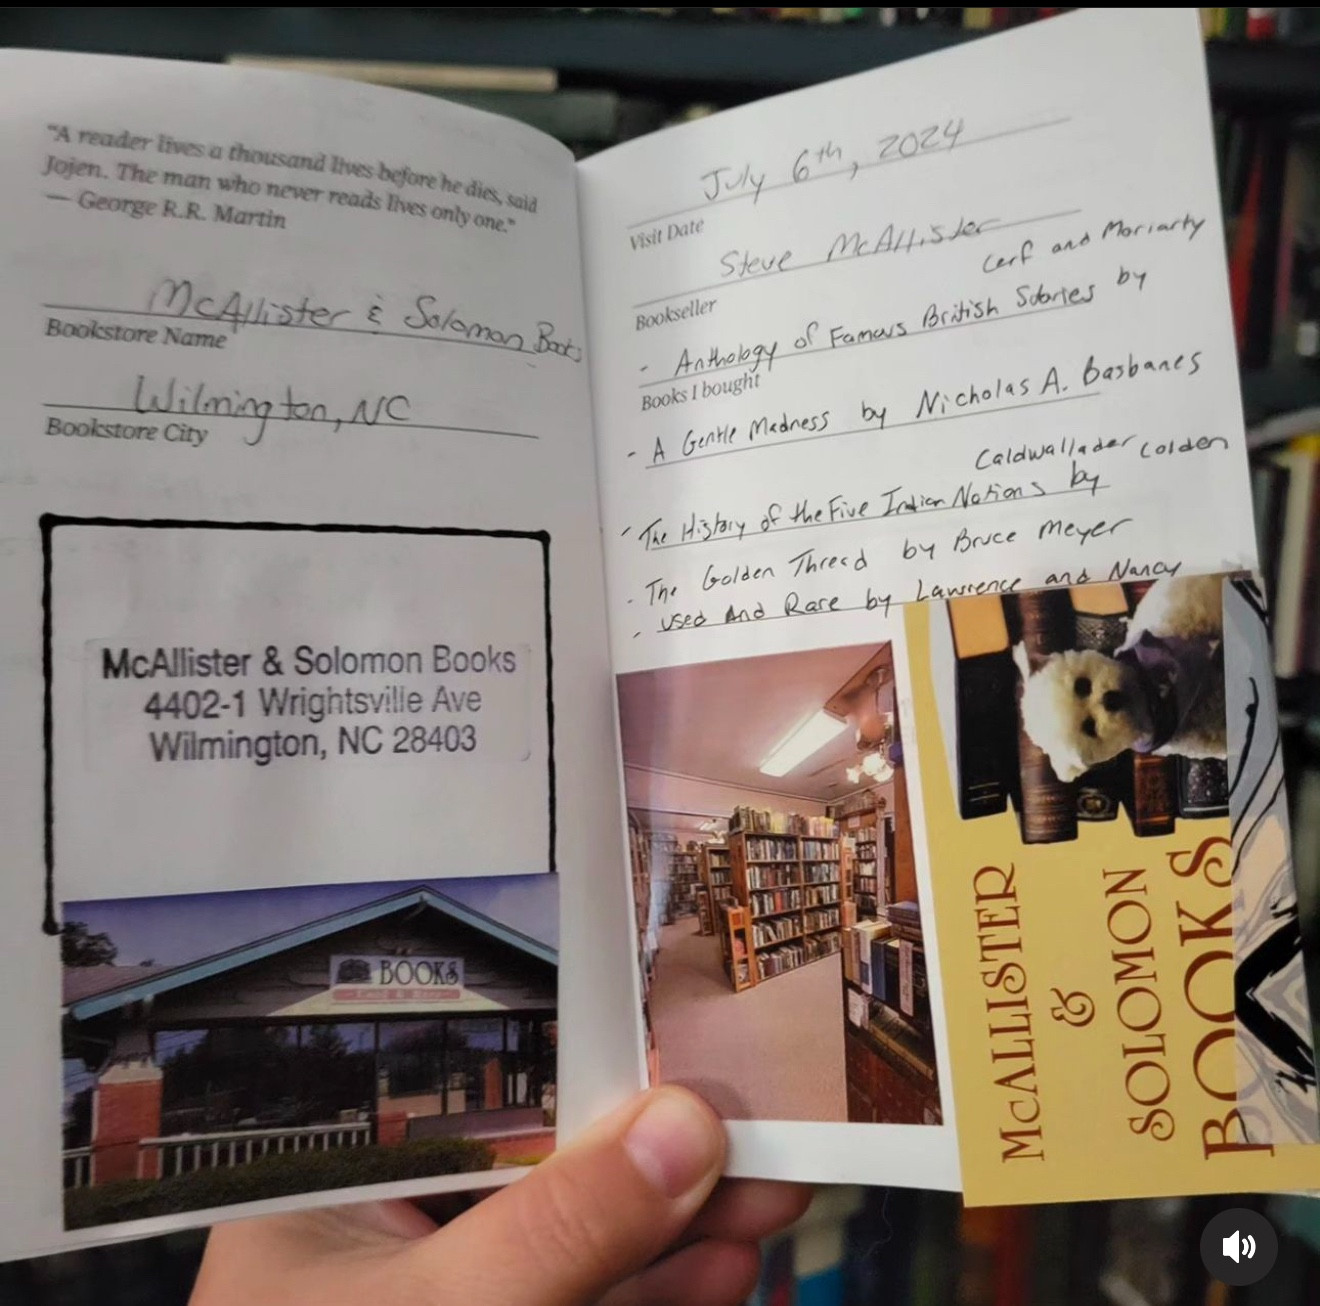 "A reader lives a thousand lives before he dies, said
Jojen. The man who never reads lives only one."
— George R.R. Martin
McAllister & Solomon Books
Bookstore Name
Wilmington, NC
Bookstore City
McAllister & Solomon Books
4402-1 Wrightsville Ave
Wilmington, NC 28403
BOOKS
July 6th, 2024
Visit Date
Steve McAllister
Bookseller
Cerf and Moriarty
- Anthology of Famous British Stories by
Books I bought
- A Gentle Madness by Nicholas A. Basbanes
Caldwallader Colden
- The History of the Five Indian Nations by
- The Golden Thread by Bruce Meyer
- Used And Rare by Lawrence and Nancy
McALLISTER
&
SOLOMON
BOOKS